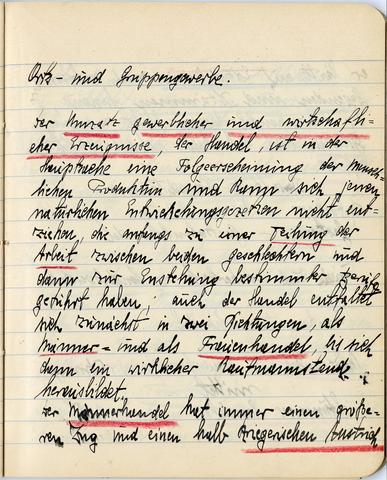 Orts- und Gruppengewerbe.
Der Umsatz gewerblicher und wirtschaftli-
cher Erzeignisse, der Handel, ist in der
Hauptsache eine Folgeerscheinung der mensch-
lichen Produktion und kann sich jenen
natürlichen Entwicklungsgesetzen nicht ent-
ziehen, die anfangs zu einer Teilung der
Arbeit zwischen beiden Geschlechtern und
dann zur Enstehung bestimmter Berufe
geführt haben; auch der Handel entfaltet
sich zunächst in zwei Richtungen, als
Männer- und als Frauenhandel, bis sich
dann ein wirklicher Kaufmannstand
herausbildet.
Der Männerhandel hat immer einen größe-
ren Zug und einen halb kriegerischen Anstrich